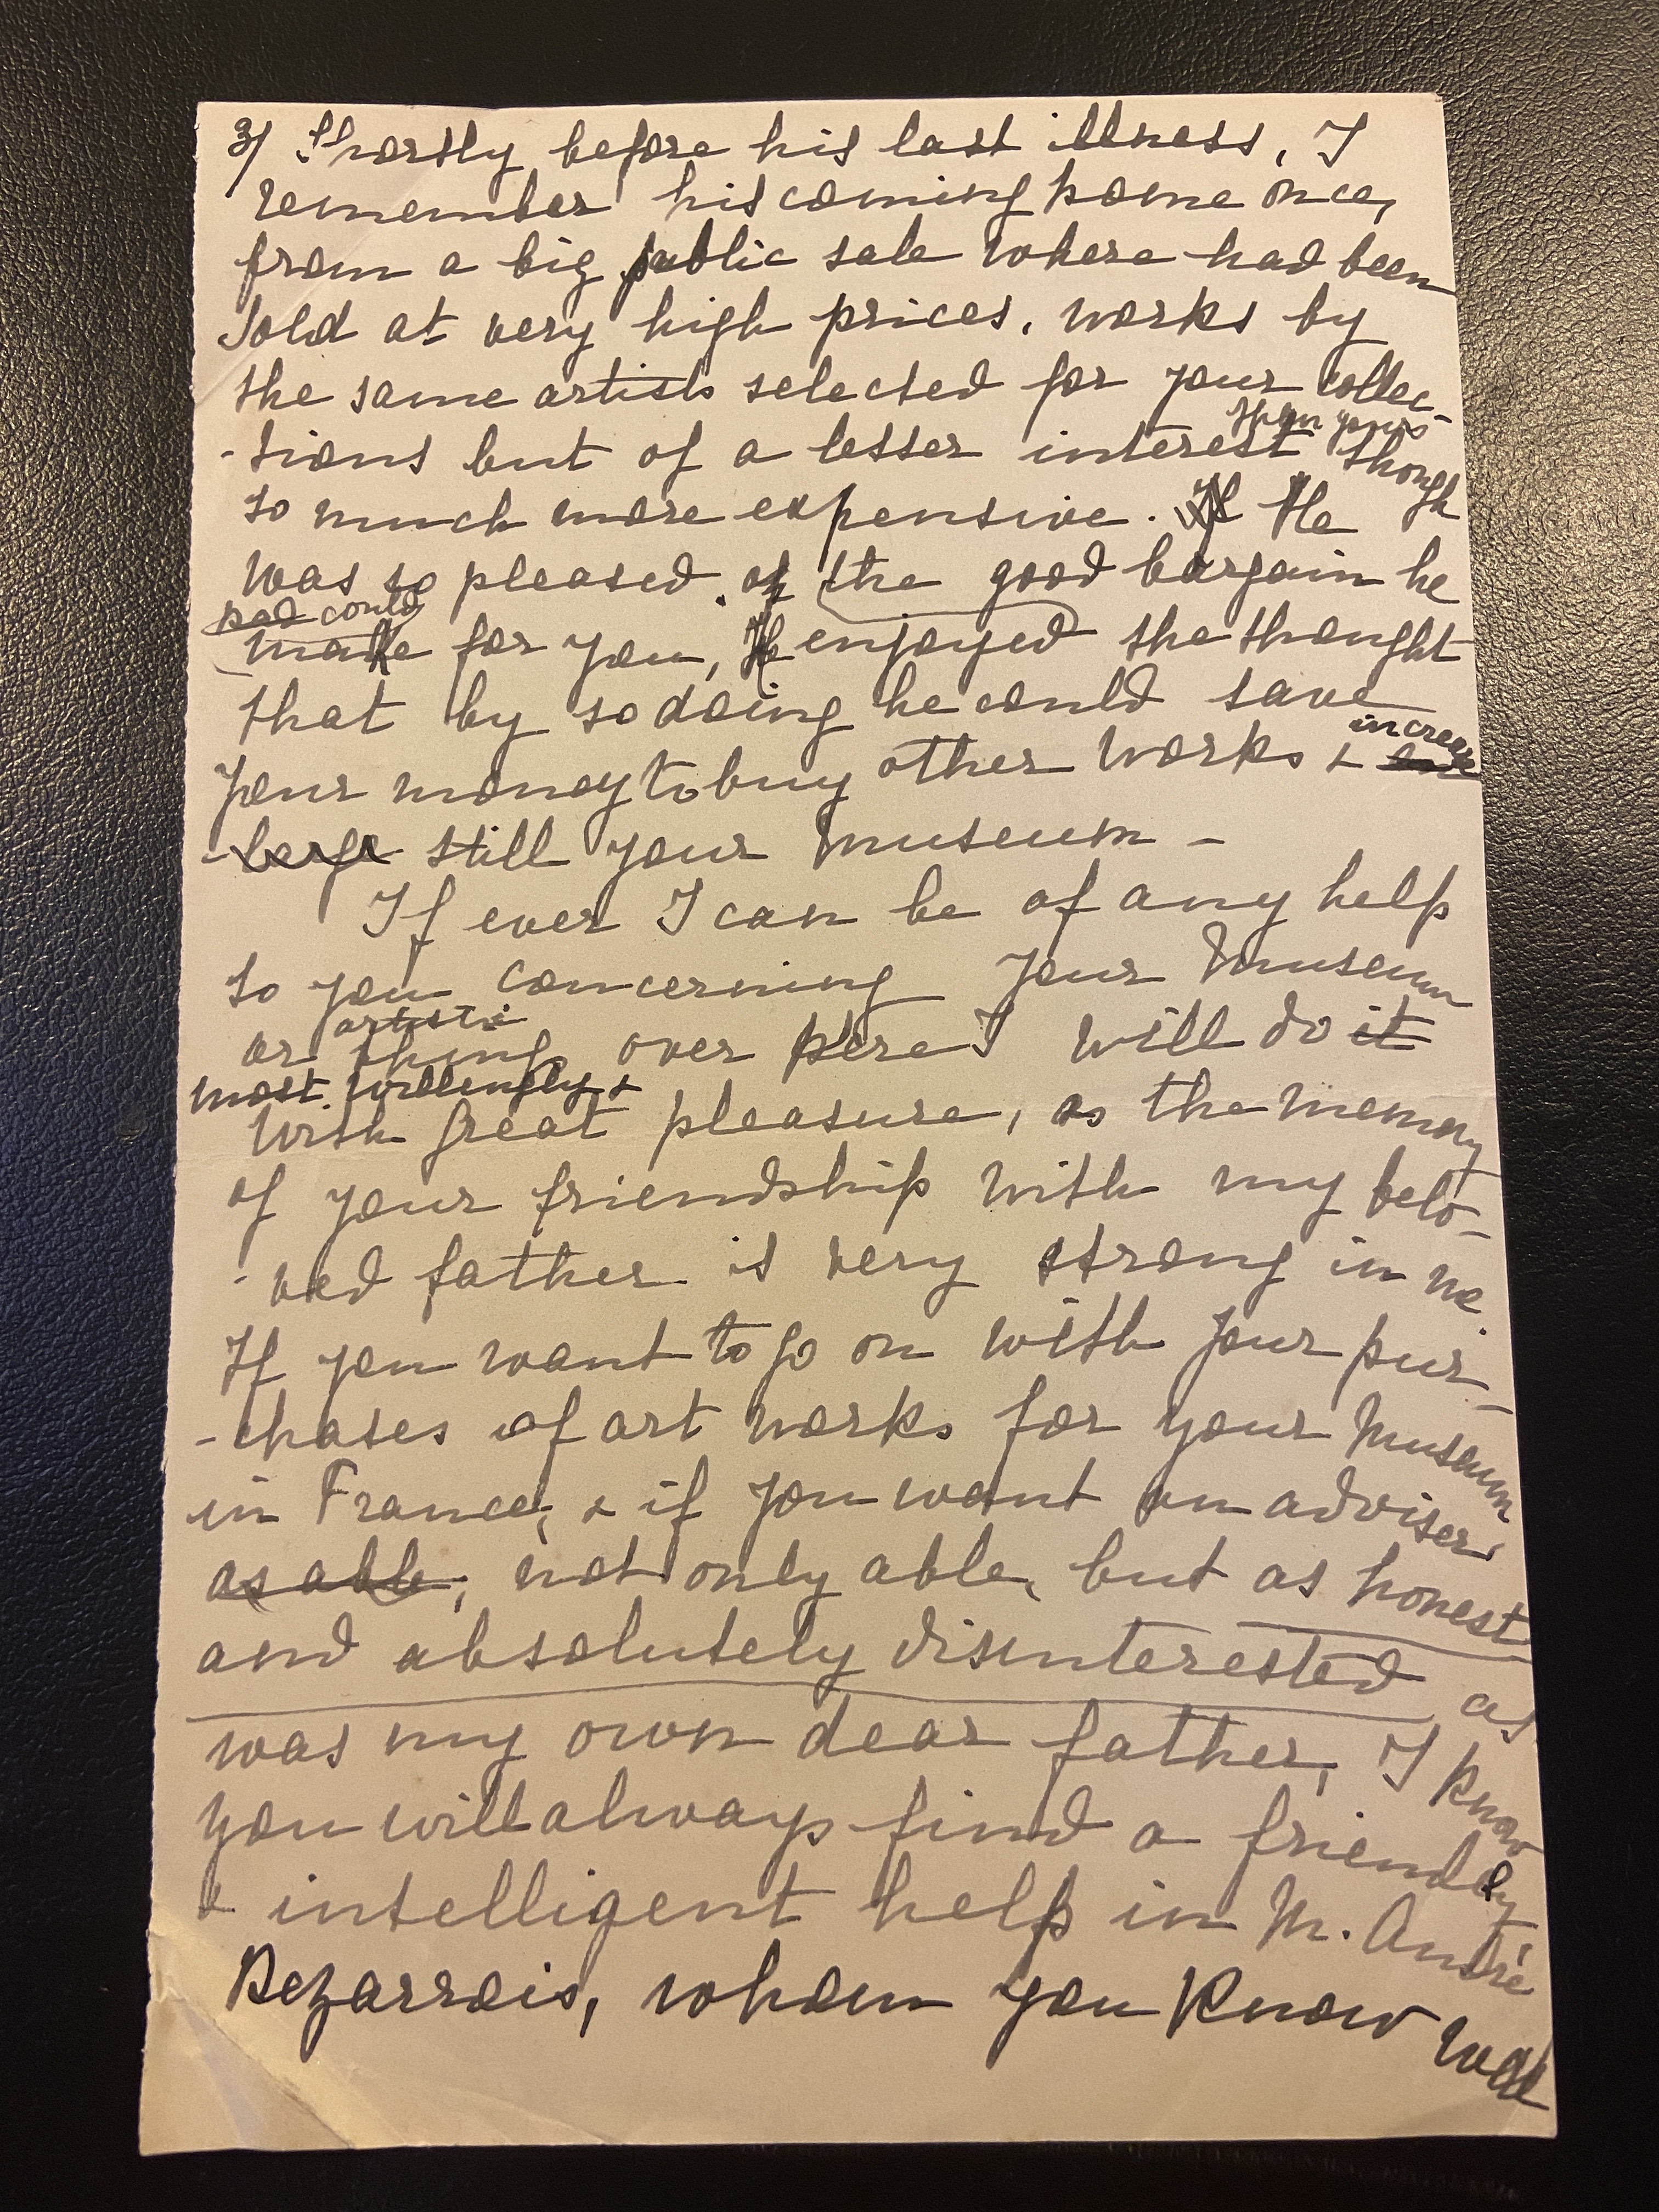 3/ Shortly before his last illness, I
remember his coming home once,
from a big public sale where had been
sold at very high prices, works by
the same artists selected for your collec-
than yours
-tions but of a lesser interest though
so much more expensive. He
was so pleased of the good bargain he
had could
make for you, He enjoyed the thought
that by so doing he could save
increase
your money to buy other works &
-large still your museum -
If ever I can be of any help
to you concerning your Museum
artistic
or things over here I will do it
most willingly &
with great pleasure, as the memory
of your friendship with my belo-
-ved father is very strong in me.
If you want to go on with your pur-
-chases of art works for your Museum
in France, & if you want an adviser
as able, not only able, but as honest
and absolutely disinterested as
was my own dear father, I know
you will always find a friendly
& intelligent help in M. André
Dezarrois, whom you know well